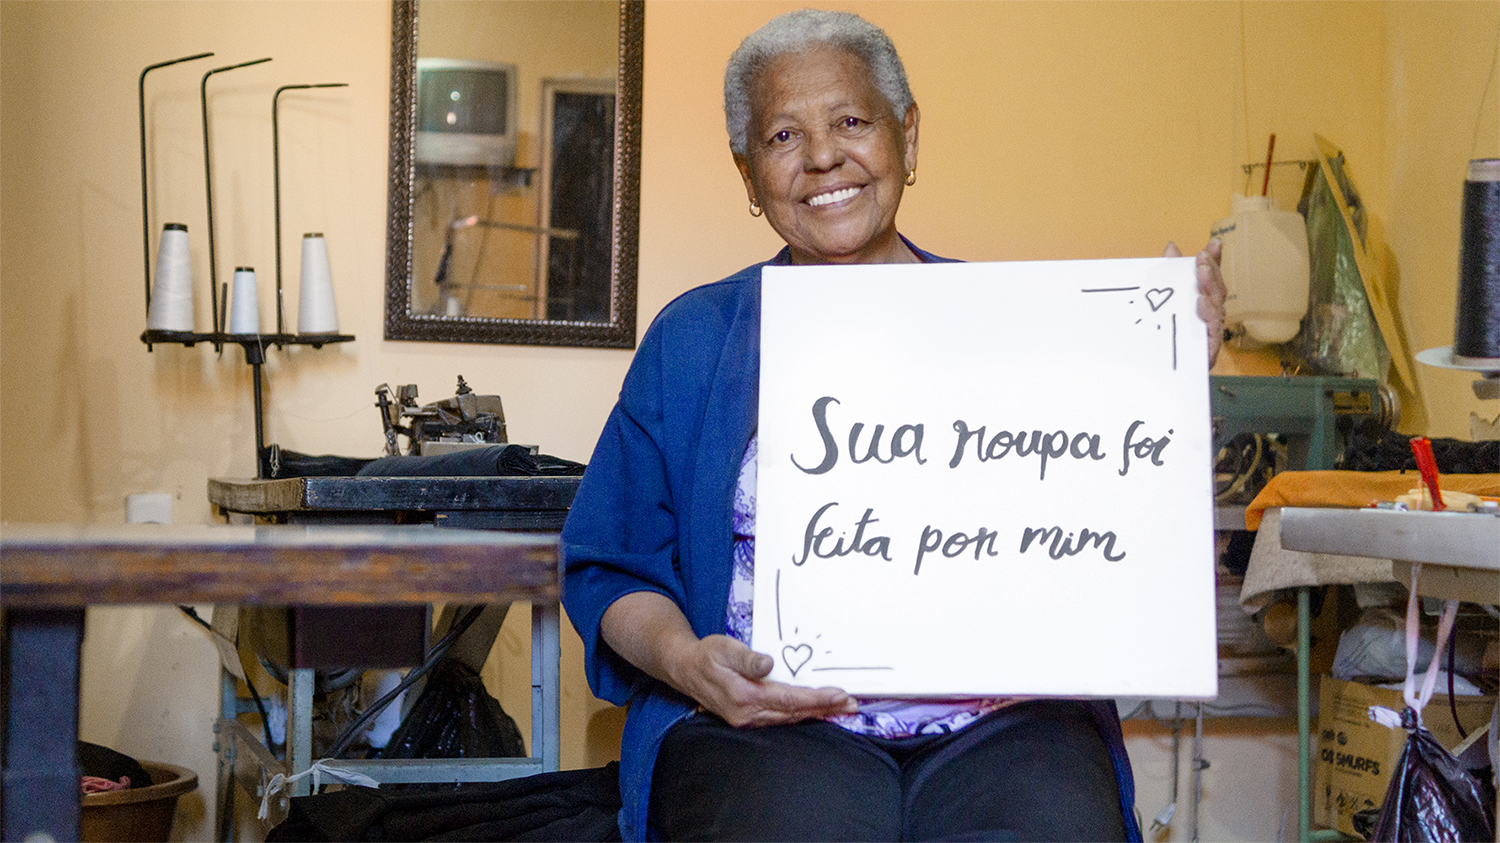 Sua roupa foi
feita por mim
OS SMURFS